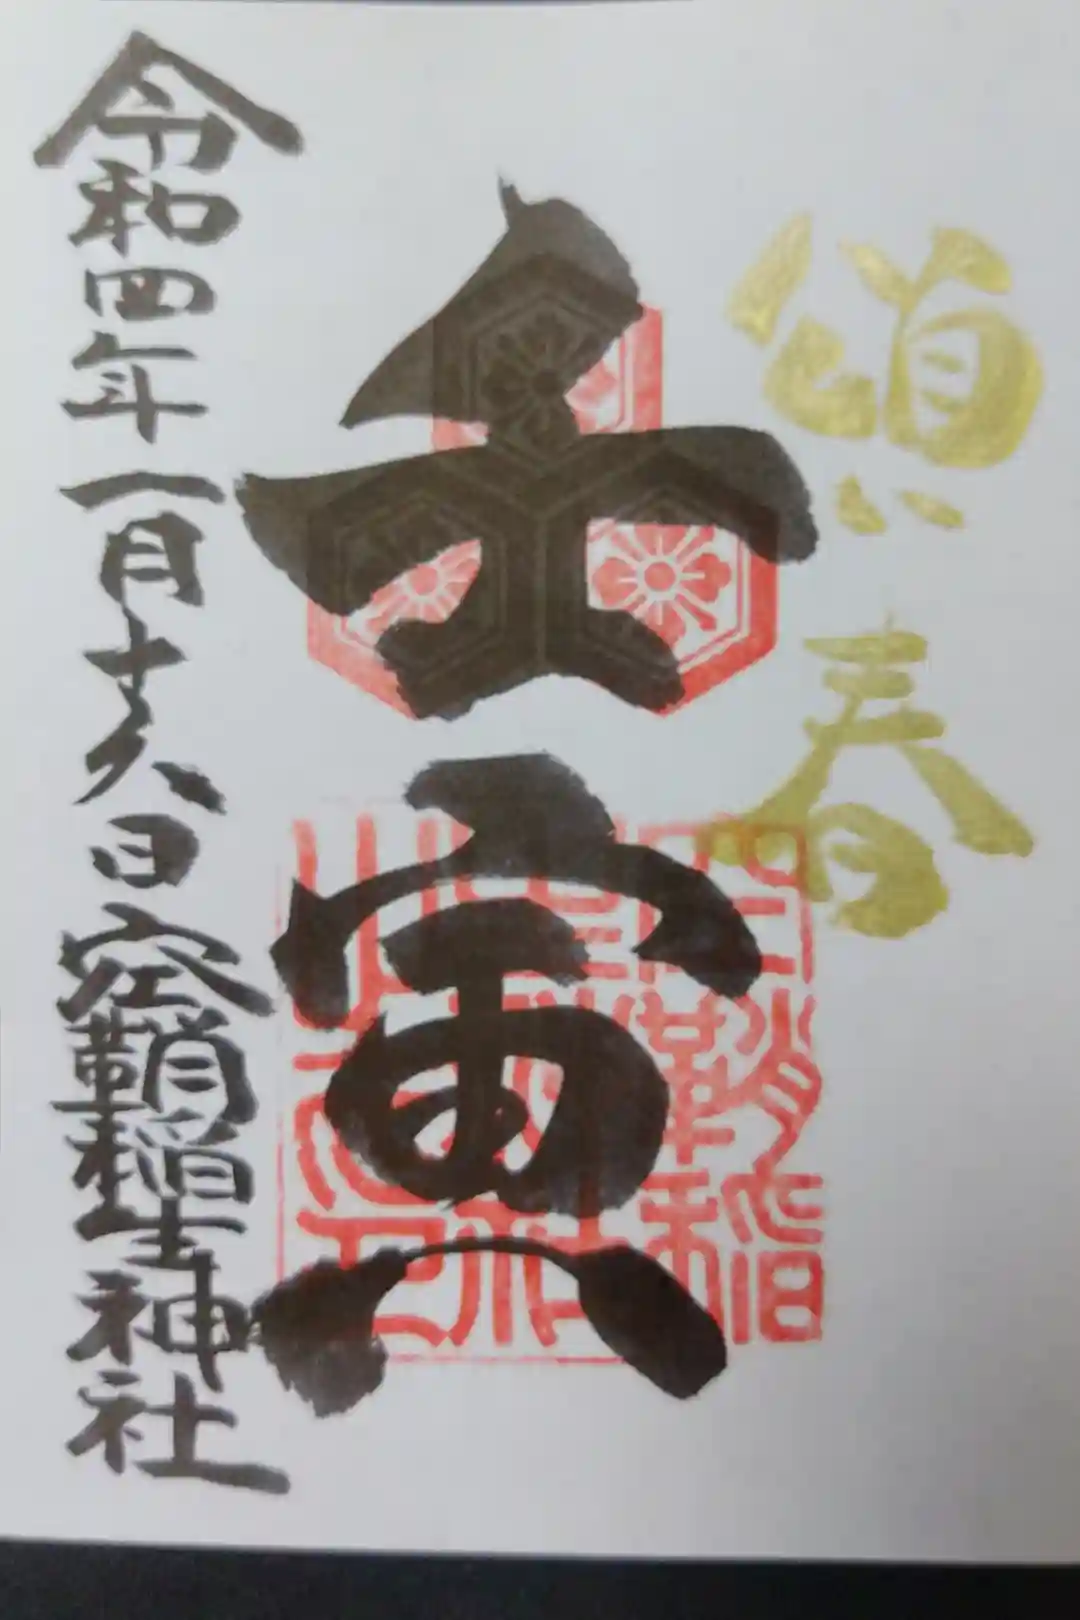 頌春
壬寅
空鞘稲
生神社
之印
令和四年一月十六日空鞘稲生神社